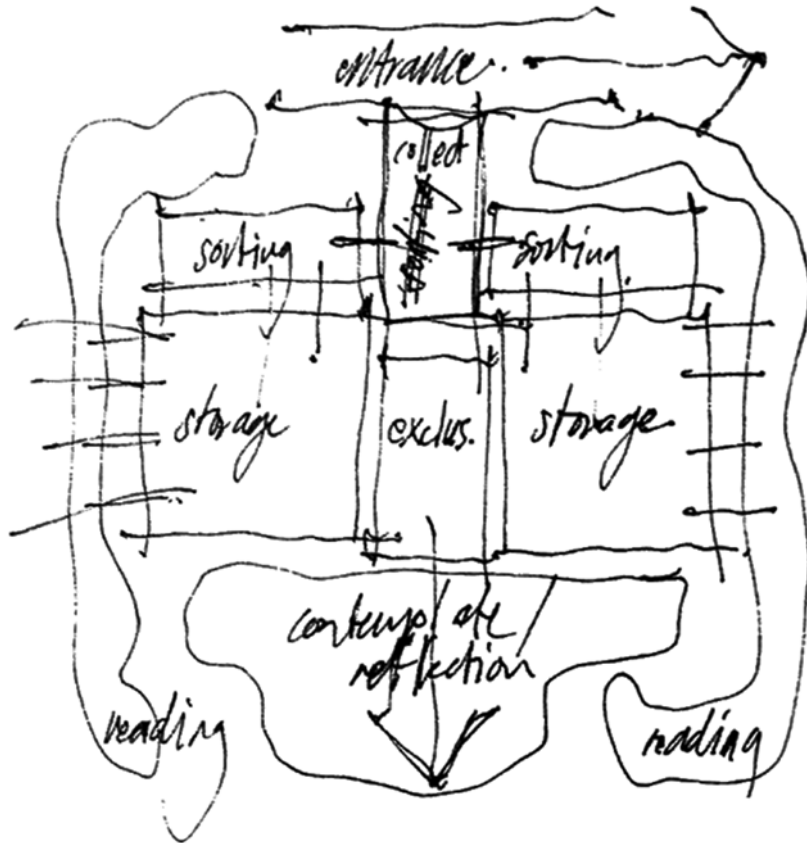 entrance.
collect
sorting
sorting
storage
exclus.
storage.
contemplate
reflection
reading
reading